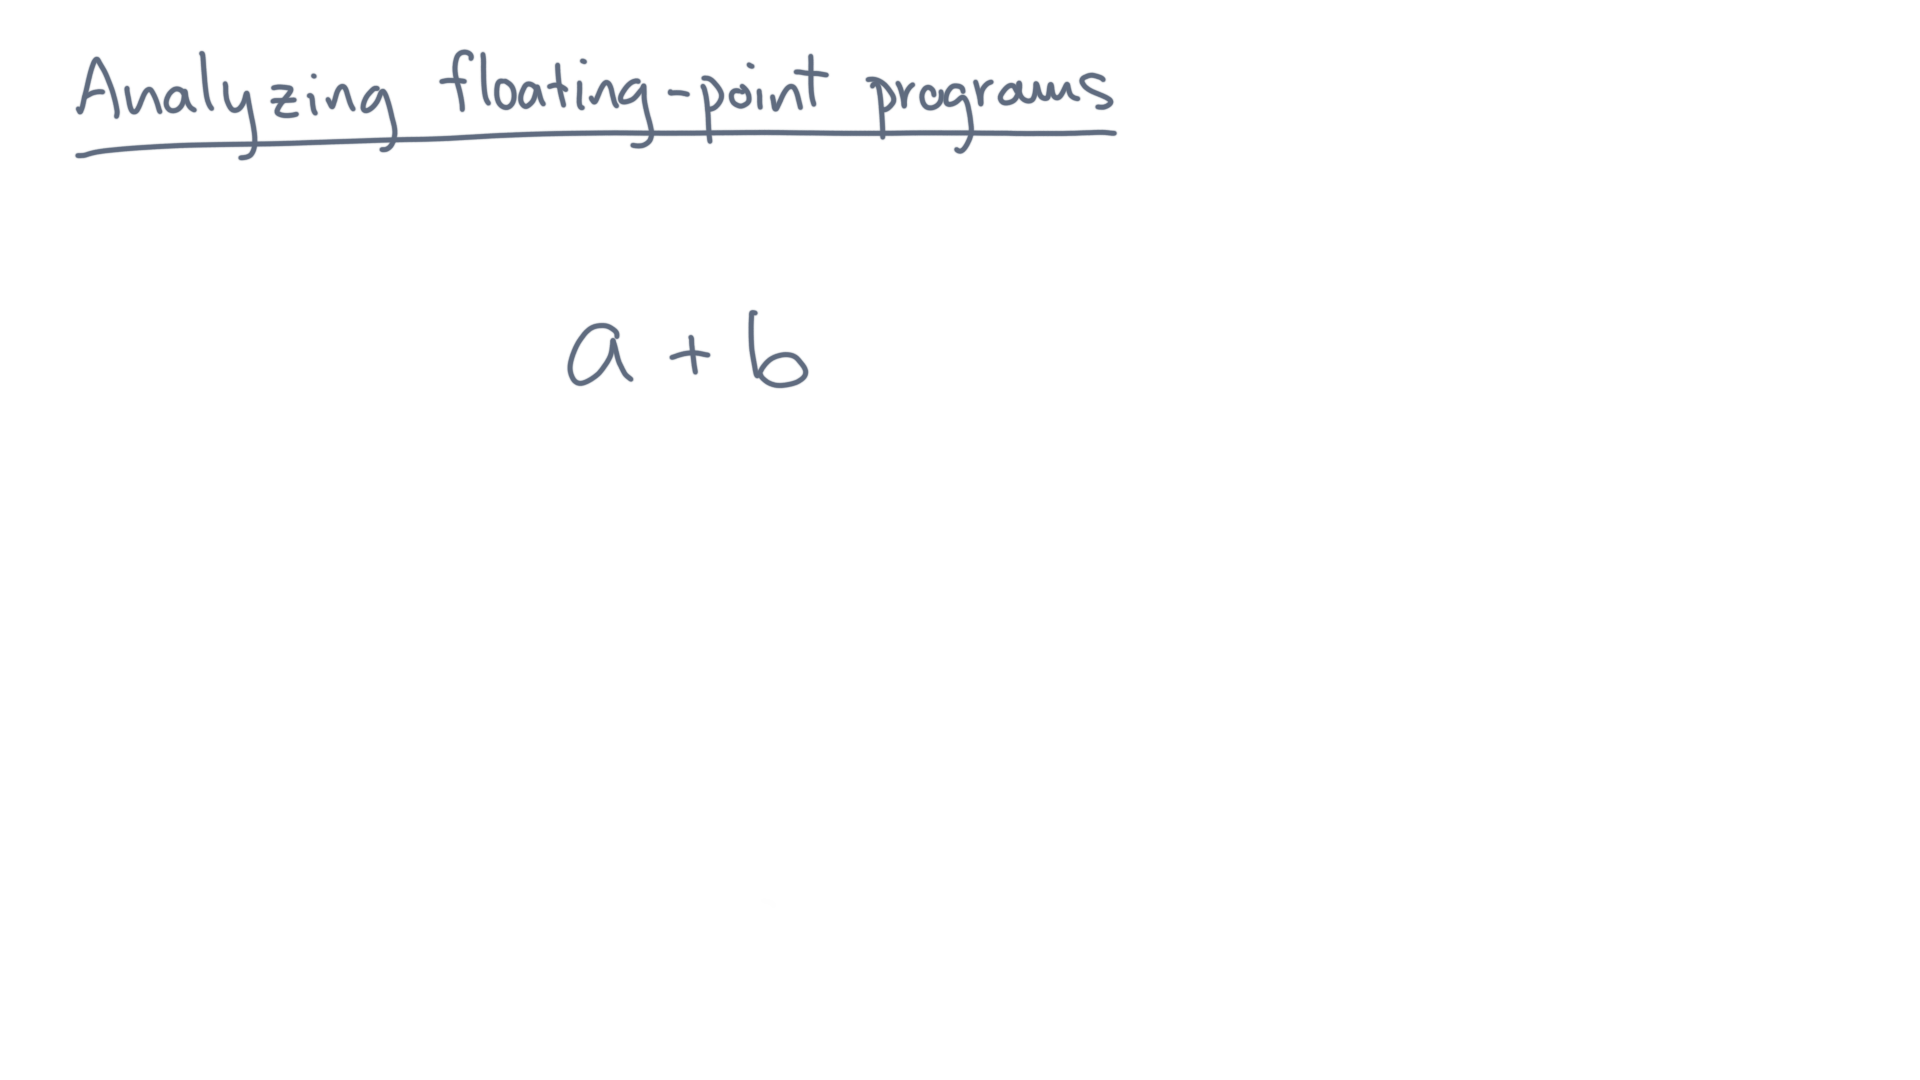 Analyzing floating-point programs
a + b